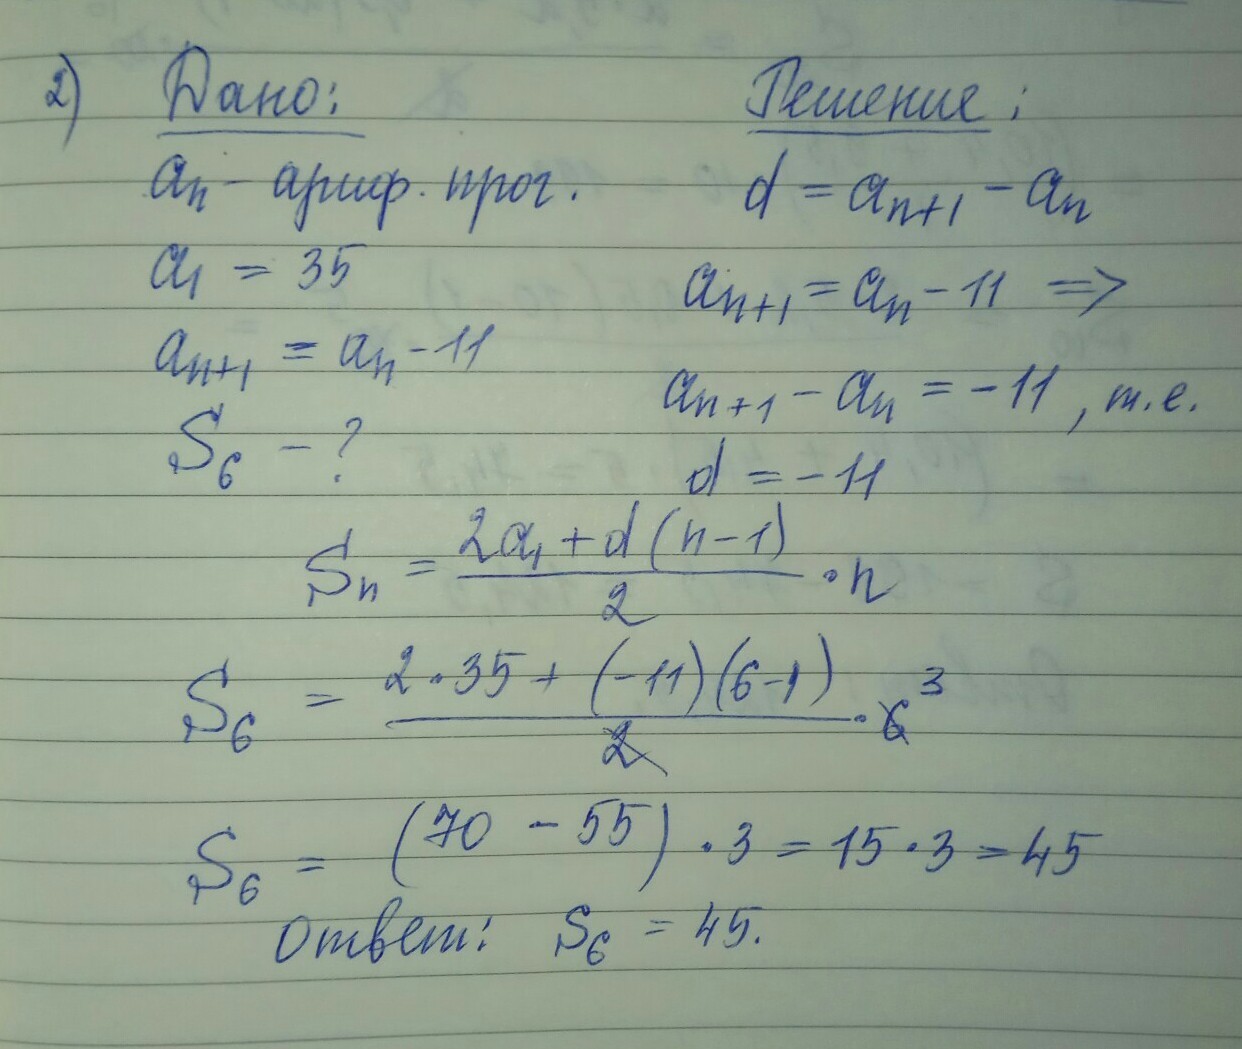 2) Дано:
aₙ - ариф. прог.
a₁ = 35
aₙ₊₁ = aₙ - 11
S₆ - ?
Решение:
d = aₙ₊₁ - aₙ
aₙ₊₁ = aₙ - 11 =>
aₙ₊₁ - aₙ = -11, т.е.
d = -11
Sₙ = (2a₁ + d(n-1))/2 · n
S₆ = (2·35 + (-11)(6-1))/2 · 6 3
S₆ = (70 - 55) · 3 = 15·3 = 45
Ответ: S₆ = 45.